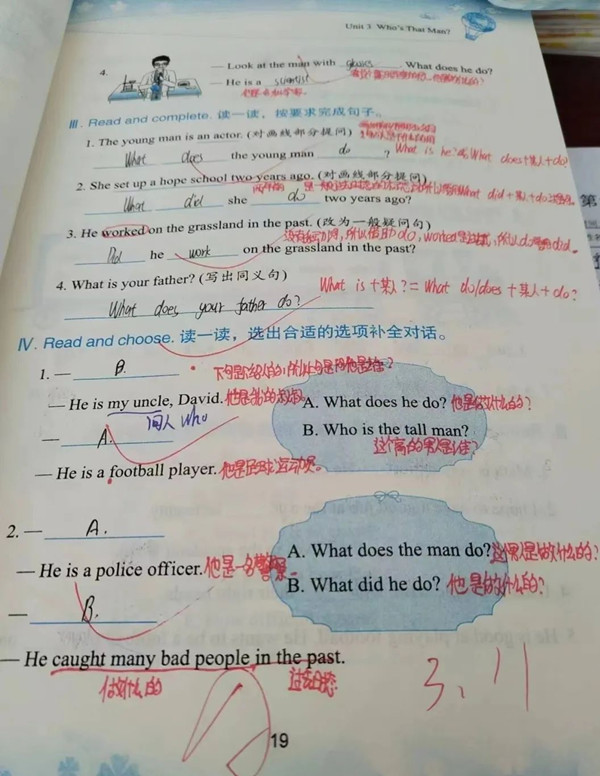 Unit 3 Who's That Man?
4.
— Look at the man with glasses. What does he do?
— He is a scientist.
他是一名科学家。
Ⅲ. Read and complete. 读一读，按要求完成句子。
1. The young man is an actor. (对画线部分提问)
What does the young man do ? What is he?或What does+某人+do
2. She set up a hope school two years ago. (对画线部分提问)
What did she do two years ago? What did+某人+do
3. He worked on the grassland in the past. (改为一般疑问句)
Did he work on the grassland in the past?
4. What is your father? (写出同义句)
What is+某人?= What do/does+某人+do?
What does your father do?
Ⅳ. Read and choose. 读一读，选出合适的选项补全对话。
1. — B.
— He is my uncle, David. 他是我的叔叔
问人 who
— A.
— He is a football player. 他是足球运动员。
A. What does he do? 他是做什么的?
B. Who is the tall man?
这个高的男人是谁?
2. — A.
— He is a police officer. 他是一名警察。
— B.
— He caught many bad people in the past.
做什么的 过去
A. What does the man do? 这个男人是做什么的?
B. What did he do? 他是做什么的?
3、11
19
第